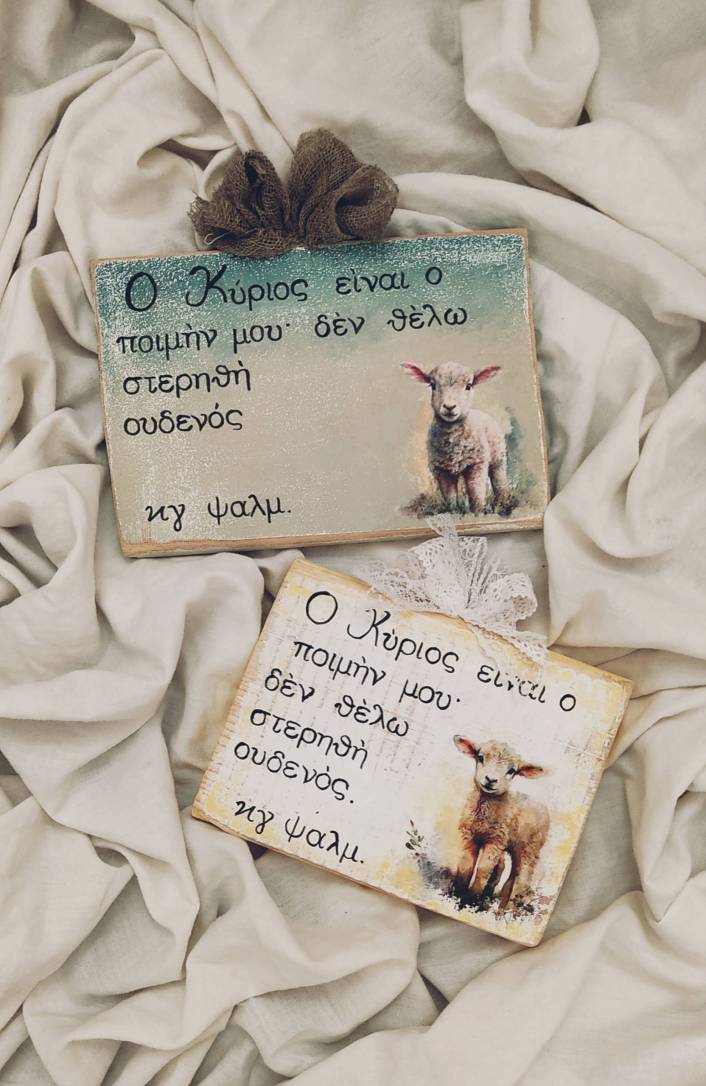 Ο Κύριος εὶναι ο
ποιμὴν μου· δὲν θὲλω
στερηθὴ
ουδενός
κγ ψαλμ.
Ο Κὺριος εἰναι ο
ποιμὴν μου·
δὲν θὲλω
στερηθὴ
ουδενὸς.
κγ ψαλμ.